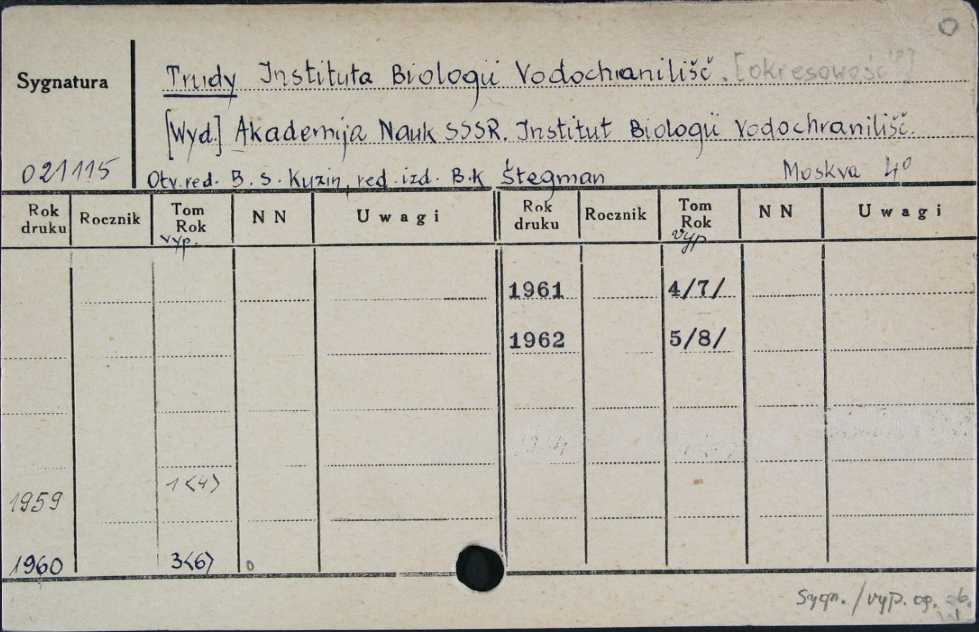 Sygnatura
Trudy Instituta Biologii Vodochranilišč. [okresowość?]
[Wyd.] Akademija Nauk SSSR. Institut Biologii Vodochranilišč.
021115 Otv. red. B. S. Kuzin, red. izd. B.K Štegman Moskva 4°
Rok druku Rocznik Tom Rok NN Uwagi Rok druku Rocznik Tom Rok NN Uwagi
vyp. vyp
1961 4/7/
1962 5/8/
1959 1<4>
1960 3<6>
Sygn. / vyp. og.